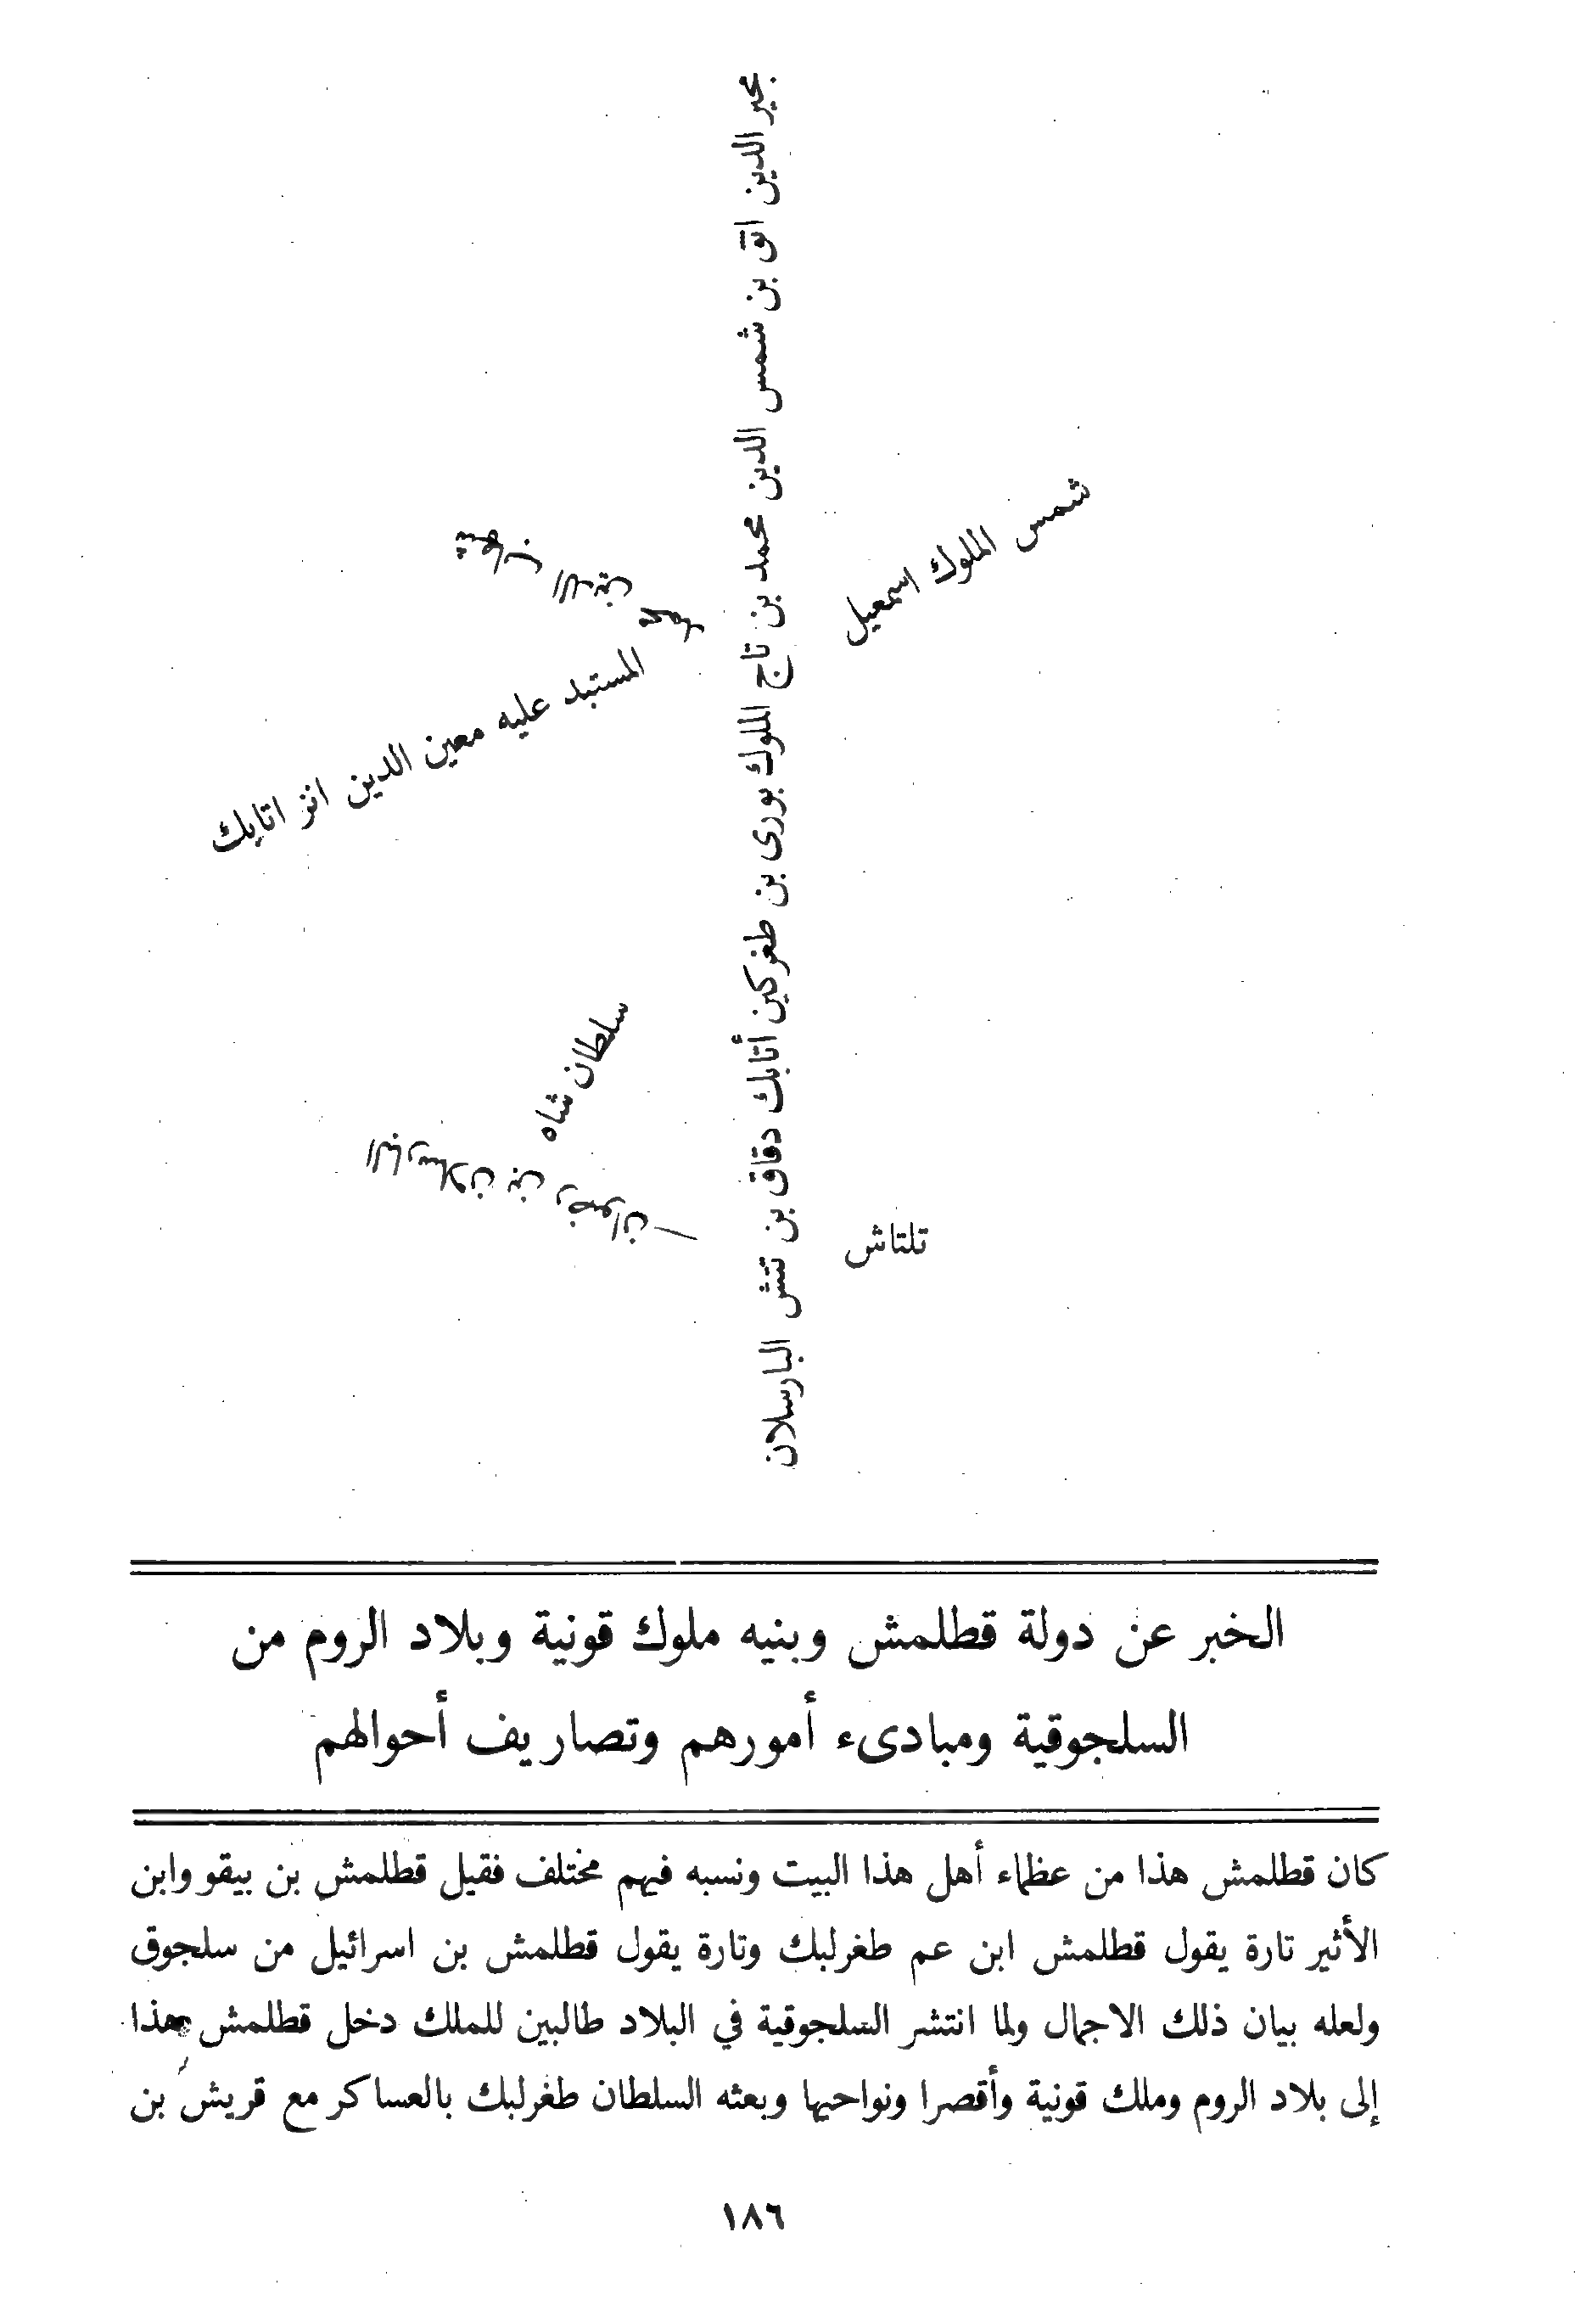 مجير الدين اتق بن شمس الدين محمد بن تاج الملوك بورى بن طغركين أتابك دقاق بن تتش البارسلان
شمس الملوك اسمعيل
شهاب الدين
المستبد عليه معين الدين انز اتابك
سلطان شاه
البارسلان بن رضوان
تلتاش
الخبر عن دولة قطلمش وبنيه ملوك قونية وبلاد الروم من
السلجوقية ومبادىء أمورهم وتصاريف أحوالهم
كان قطلمش هذا من عظماء أهل هذا البيت ونسبه فيهم مختلف فقيل قطلمش بن بيقو وابن
الأثير تارة يقول قطلمش ابن عم طغرلبك وتارة يقول قطلمش بن اسرائيل من سلجوق
ولعله بيان ذلك الاجمال ولما انتشر السلجوقية في البلاد طالبين للملك دخل قطلمش هذا
إلى بلاد الروم وملك قونية وأقصرا ونواحيها وبعثه السلطان طغرلبك بالعساكر مع قريش بن
١٨٦